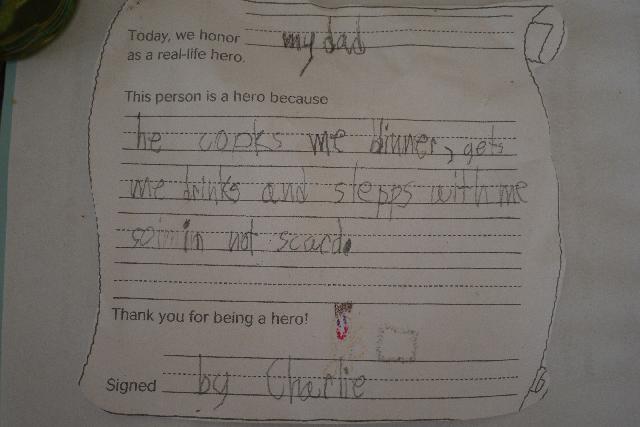 Today, we honor my dad
as a real-life hero.
This person is a hero because
he cooks me dinner, gets
me drinks and slepps with me
so im not scard.
Thank you for being a hero!
Signed by Charlie